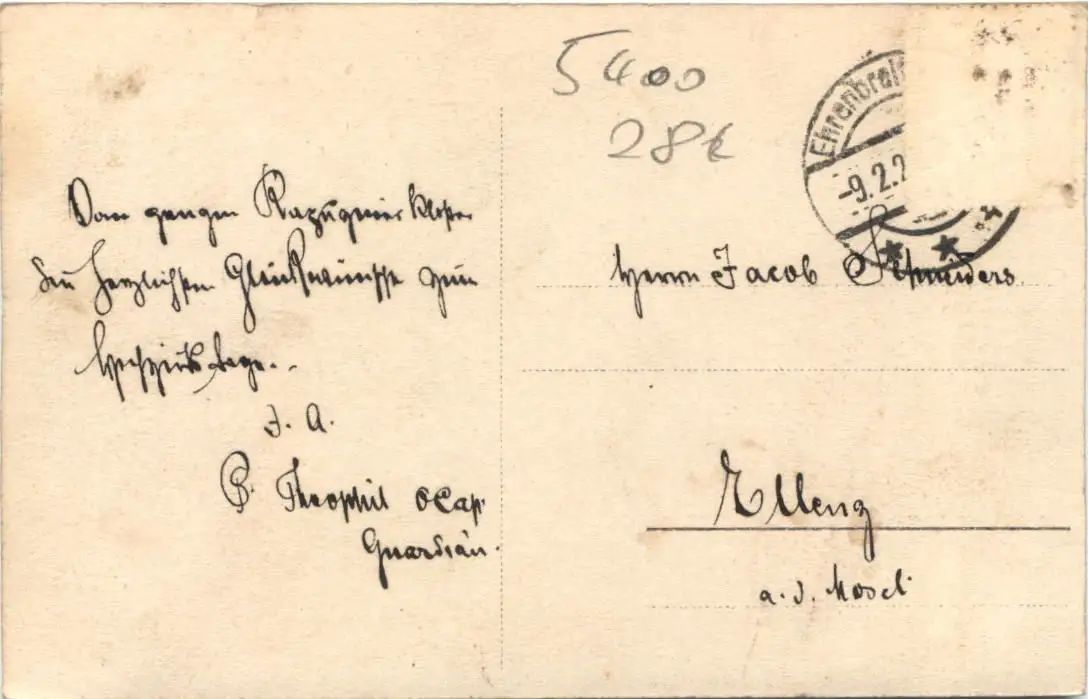 5400
28€
Ehrenbreit
-9.2.2
Vom ganzen Kapuziner Kloster
die herzlichsten Glückwünsche zum
Hochzeitstage.
I. A.
P. Theophil OCap.
Guardian.
Herrn Jacob Schneiders
Ellenz
a. d. Mosel